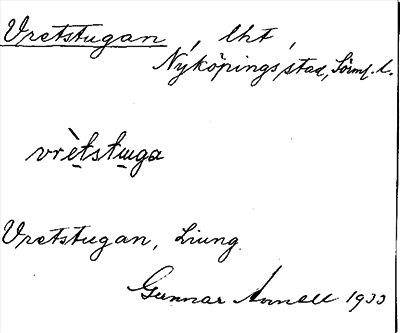 Vretstugan, lht,
Nyköpings stad, Sörml. l.
vrètstuga
Vretstugan, Liung.
Gunnar Annell 1933